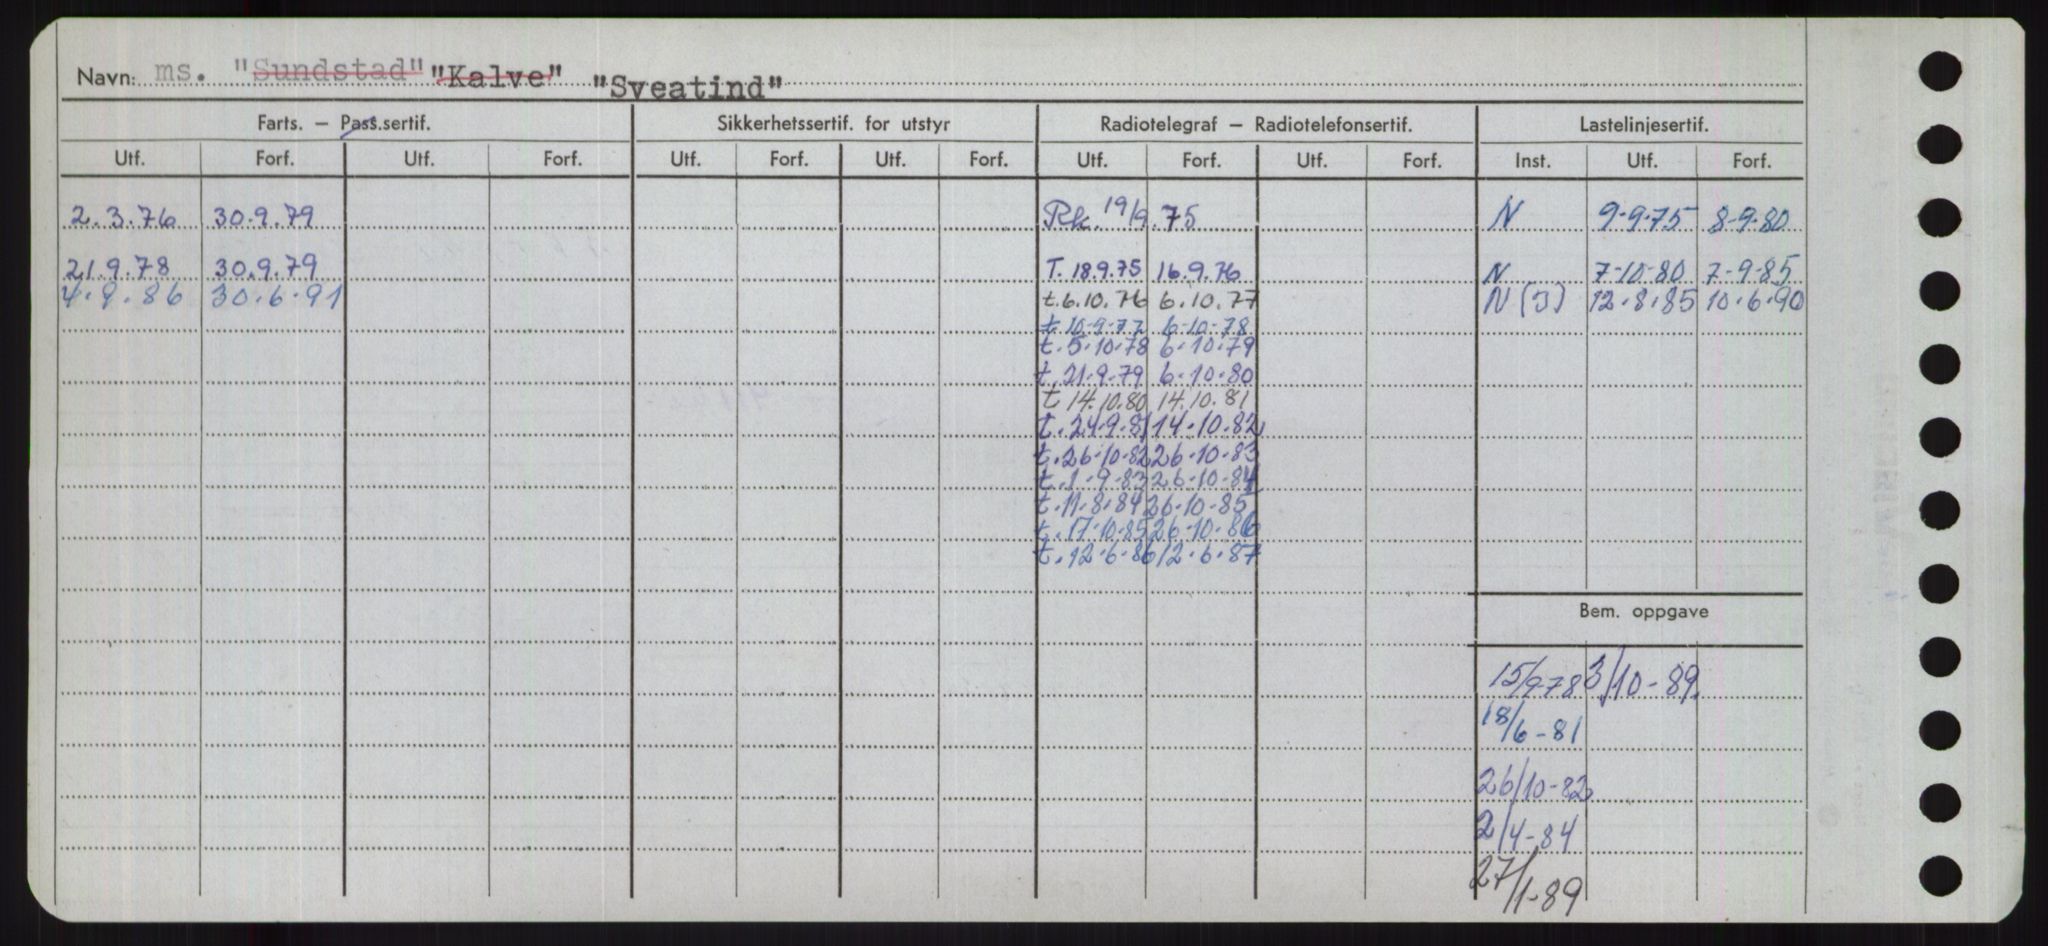 Navn: ms. "Sundstad" "Kalve" "Sveatind"
Farts. — Pass.sertif. Sikkerhetssertif. for utstyr Radiotelegraf — Radiotelefonsertif. Lastelinjesertif.
Utf. Forf. Utf. Forf. Utf. Forf. Utf. Forf. Utf. Forf. Utf. Forf. Inst. Utf. Forf.
2.3.76 30.9.79 Rk. 19/9.75 N 9-9-75 8-9-80
21.9.78 30.9.79 T. 18.9.75 16.9.76 N 7-10-80 7-9-85
4.9.86 30.6.91 t. 6.10.76 6.10.77 N (J) 12.8.85 10.6.90
t 10-9-77 6-10-78
t. 5.10.78 6.10.79
t. 21.9.79 6.10.80
t 14.10.80 14.10.81
t. 24.9.81 14.10.82
t. 26.10.82 26.10.83
t. 1.9.83 26.10.84
t. 11.8.84 26.10.85
t. 17.10.85 26.10.86
t. 12.6.86 12.6.87
Bem. oppgave
15/9-78 3/10-89
18/6-81
26/10-82
2/4-84
27/1-89